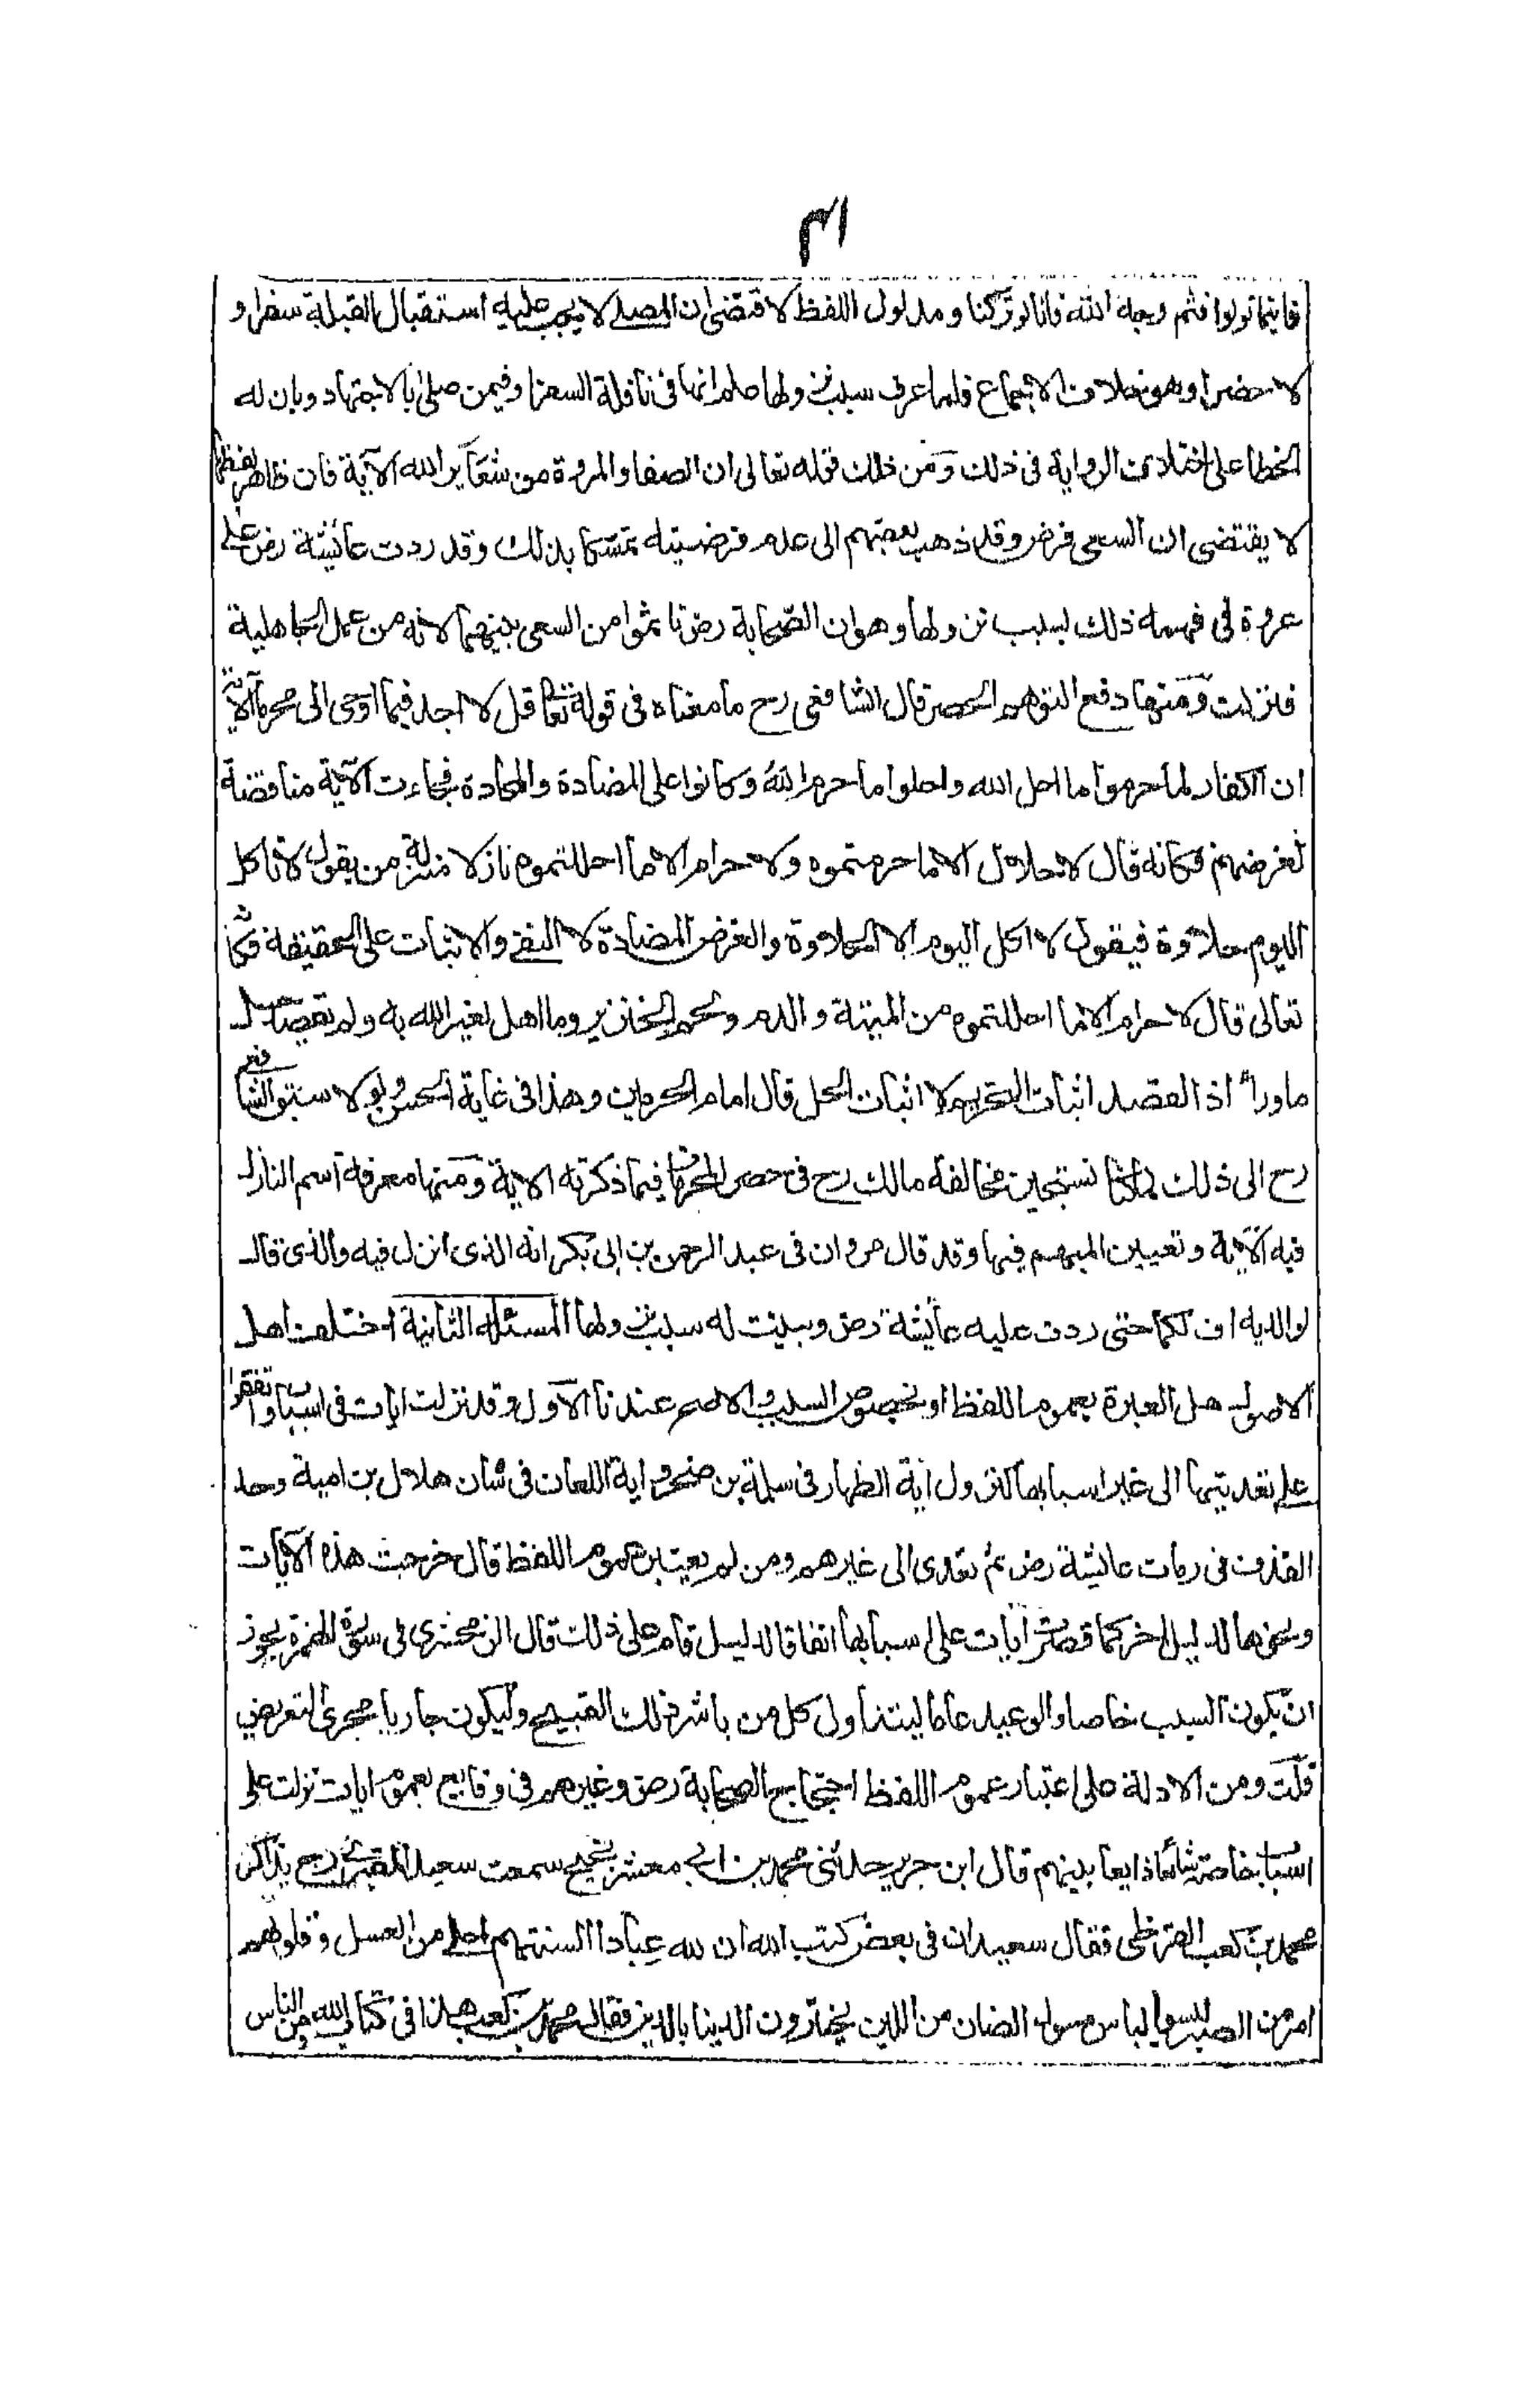 ٣١
فاينما تولوا فثم وجه الله فانا لو تركنا ومدلول اللفظ لاقتضى ان المصلى لا يجب عليه استقبال القبلة سفرا و
لا حضرا وهو خلاف الاجماع فلما عرف سبب نزولها علم انها فى نافلة السفر او فيمن صلى بالاجتهاد وبان له
الخطا على اختلاف الرواية فى ذلك ومن ذلك قوله تعالى ان الصفا والمروة من شعاير الله الآية فان ظاهر لفظها
لا يقتضى ان السعى فرض وقد ذهب بعضهم الى عدم فرضيته تمسكا بذلك وقد ردت عائشة رض على
عروة فى فهمه ذلك بسبب نزولها وهو ان الصحابة رض تاثموا من السعى بينهما لانه من عمل الجاهلية
فنزلت ومنها دفع التوهم الحصر قال الشافعى رح ما معناه فى قوله تعا قل لا اجد فيما اوحى الى محرما الآية
ان الكفار لما حرموا ما احل الله واحلوا ما حرم الله وكانوا على المضادة والمحادة فجاءت الآية مناقضة
لغرضهم فكانه قال لا حلال الا ما حرمتموه ولا حرام الا ما احللتموه نازلا منزلة من يقول لا تاكل
اليوم حلاوة فيقول لا اكل اليوم الا الحلاوة والغرض المضادة لا النفى والاثبات على الحقيقة فكانه
تعالى قال لا حرام الا ما احللتموه من الميتة والدم ولحم الخنزير وما اهل لغير الله به ولم يقصد حل
ما وراه اذ القصد اثبات التحريم لا اثبات الحل قال امام الحرمين وهذا فى غاية الحسن ولولا سبق الشافعى
رح الى ذلك لما كنا نستجيز مخالفة مالك رح فى حصر المحرمات فيما ذكرته الاية ومنها معرفة اسم النازل
فيه الآية وتعيين المبهم فيها وقد قال مروان فى عبد الرحمن بن ابى بكر انه الذى انزل فيه والذى قال
لوالديه اف لكما حتى ردت عليه عائشة رض وبينت له سبب نزولها المسئلة الثانية اختلف اهل
الاصول هل العبرة بعموم اللفظ او بخصوص السبب والاصح عندنا الاول وقد نزلت ايات فى اسباب واتفقوا
على تعديتها الى غير اسبابها كنزول آية الظهار فى سلمة بن صخر واية اللعان فى شان هلال بن امية وحد
القذف فى رماة عائشة رض ثم تعدى الى غيرهم ومن لم يعتبر عموم اللفظ قال خرجت هذه الآيات
ونحوها لدليل اخر كما قصرت آيات على اسبابها اتفاقا لدليل قام على ذلك قال الزمخشرى فى سورة الهمزة يجوز
ان يكون السبب خاصا والوعيد عاما ليتناول كل من باشر ذلك القبيح وليكون جاريا مجرى التعريض
قلت ومن الادلة على اعتبار عموم اللفظ احتجاج الصحابة رض وغيرهم فى وقايع بعموم ايات نزلت على
اسباب خاصة شائعا ذايعا بينهم قال ابن جرير حدثنى محمد بن ابى معشر نجيح سمعت سعيد المقبرى رح يذاكر
محمد بن كعب القرظى فقال سعيد ان فى بعض كتب الله ان لله عبادا السنتهم احلى من العسل وقلوبهم
امر من الصبر لبسوا لباس مسوك الضان من اللين يجترون الدينا بالدين فقال محمد بن كعب هذا فى كتاب الله ومن الناس